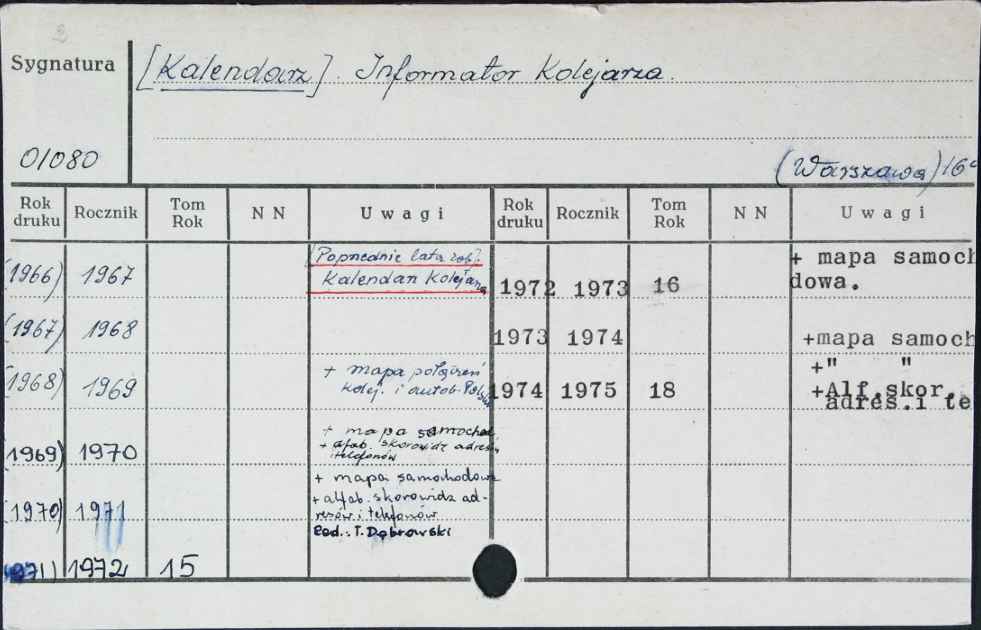 Sygnatura
[Kalendarz]. Informator Kolejarza.
01080
(Warszawa) 16°
Rok druku Rocznik Tom Rok N N Uwagi Rok druku Rocznik Tom Rok N N Uwagi
[Poprzednie lata zob].
(1966) 1967 Kalendarz Kolejarza
(1967) 1968
(1968) 1969 + mapa połączeń
kolej. i autob. Polski
(1969) 1970 + mapa samochod.
+ alfab. skorowidz adresów
i telefonów
(1970) 1971 + mapa samochodowa
+ alfab. skorowidz ad-
resów i telefonów
Red.: T. Dąbrowski
(1971) 1972 15
1972 1973 16 + mapa samoch
dowa.
1973 1974 +mapa samoch
+" "
1974 1975 18 +Alf.skor.
adres.i te